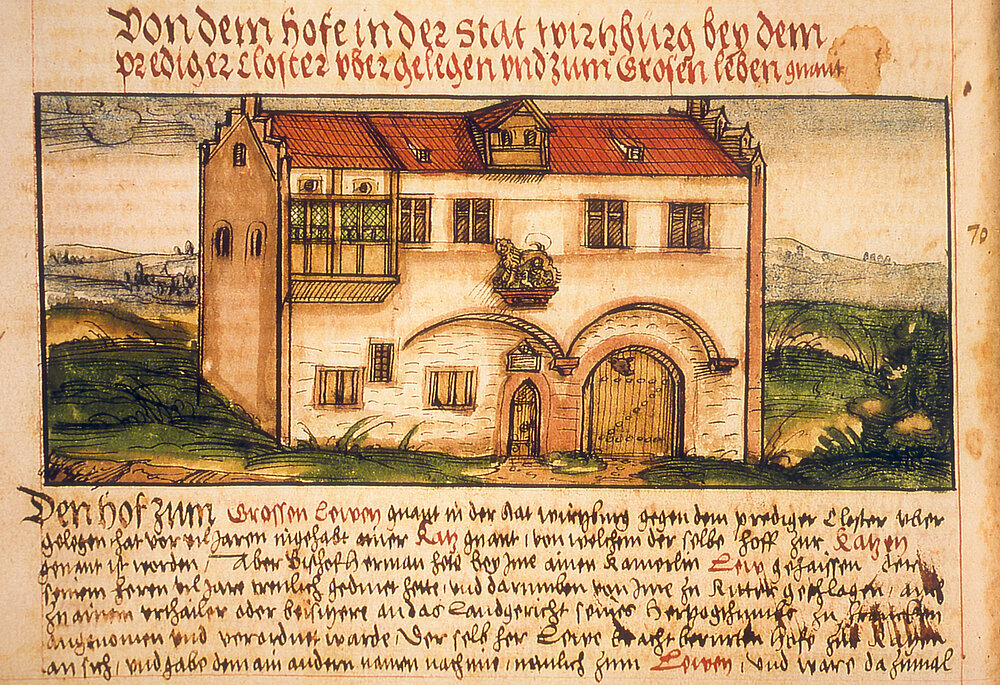 Von dem Hofe in der Stat wirtzburg bey dem
prediger closter vber gelegen vnd zum Grosen leben gnant
70
Den Hof zum Grossen Lewen gnant in der stat wirtzburg gegen dem prediger Closter vber
gelegen hat vor vil Jaren ingehabt ainer Katz gnant, von welchem der selbe hoff zur Katzen
genant ist worden, Aber Bischof Herman hete bey Ime ainen Kamerlin Lew gehaissen, der
seinem heren vil Jare trewlich gedinet hette, vnd darumben von Ime zu Ritter geschlagen, auch
zu ainem vrthailer oder beisitzere an das Landgericht seines Hertzogthumbs zu francken
angenomen vnd verordnet warde. Der selb her Lewe bracht berurten Hofe zur Katzen
an sich, vnd gabe dem ain andern namen nach ime, nemlich zum Lewen, vnd ware dazumal